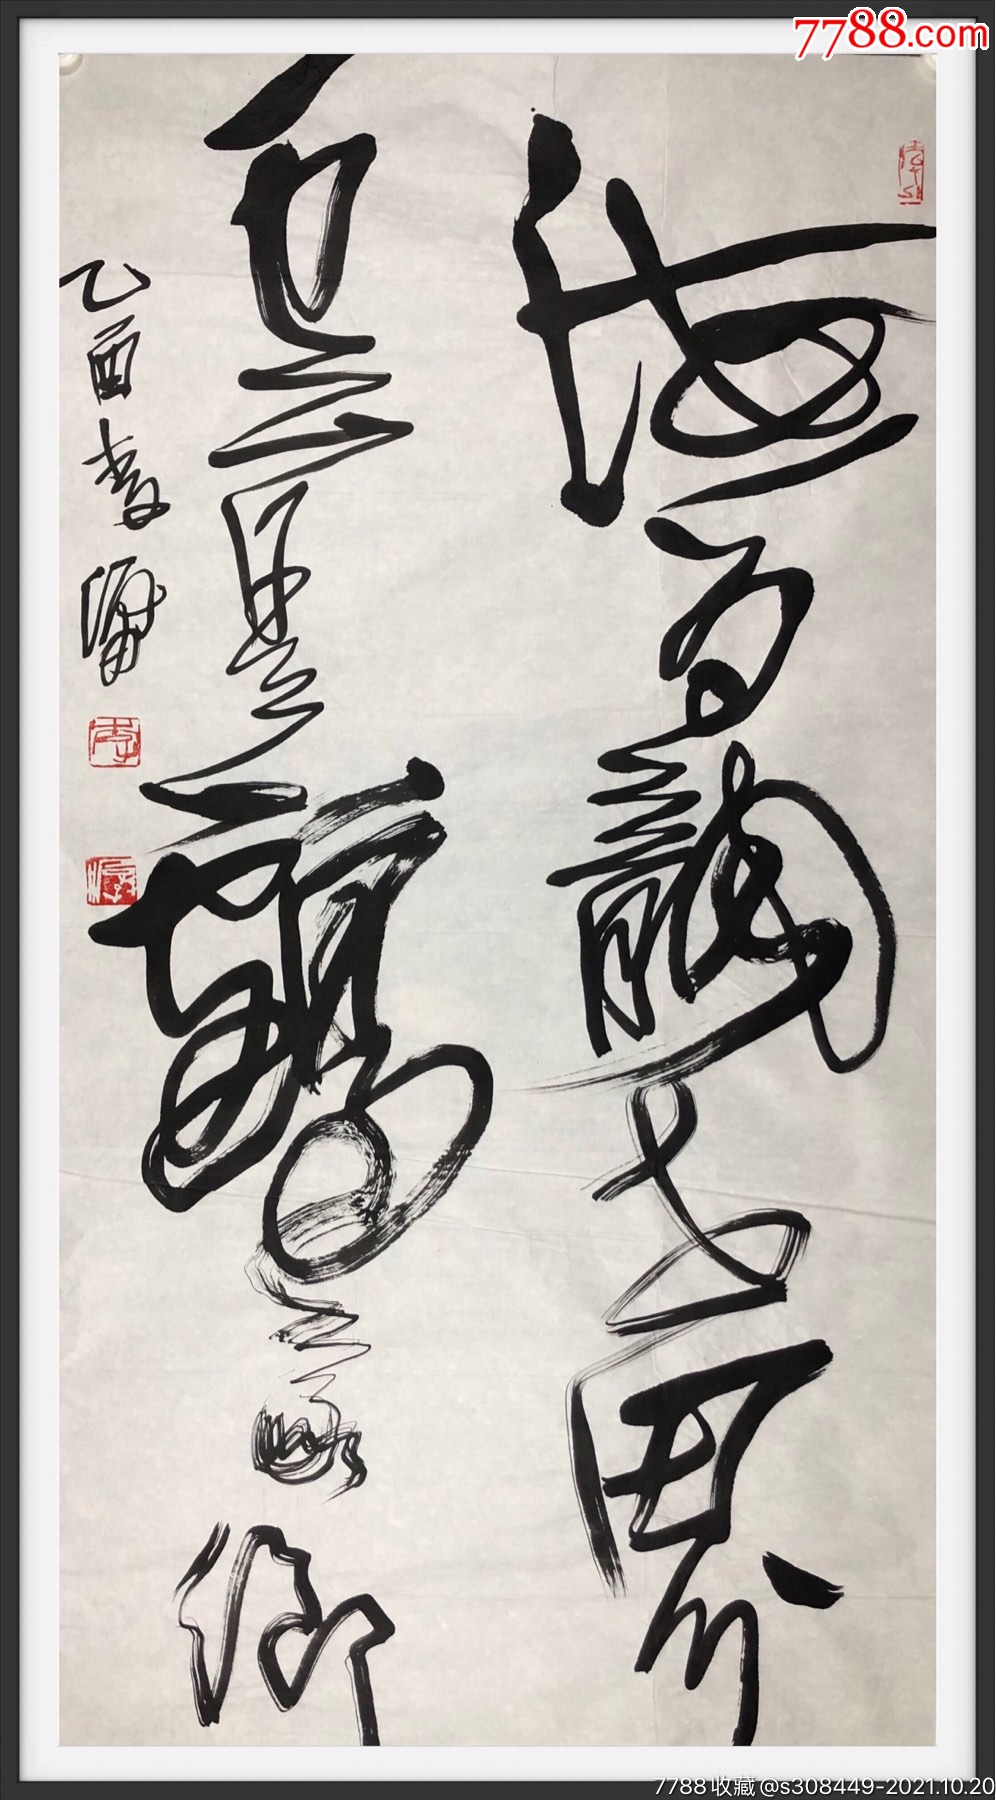 7788.com
海为龍世界
雲是鶴家鄉
乙酉李
7788收藏@s308449-2021.10.20